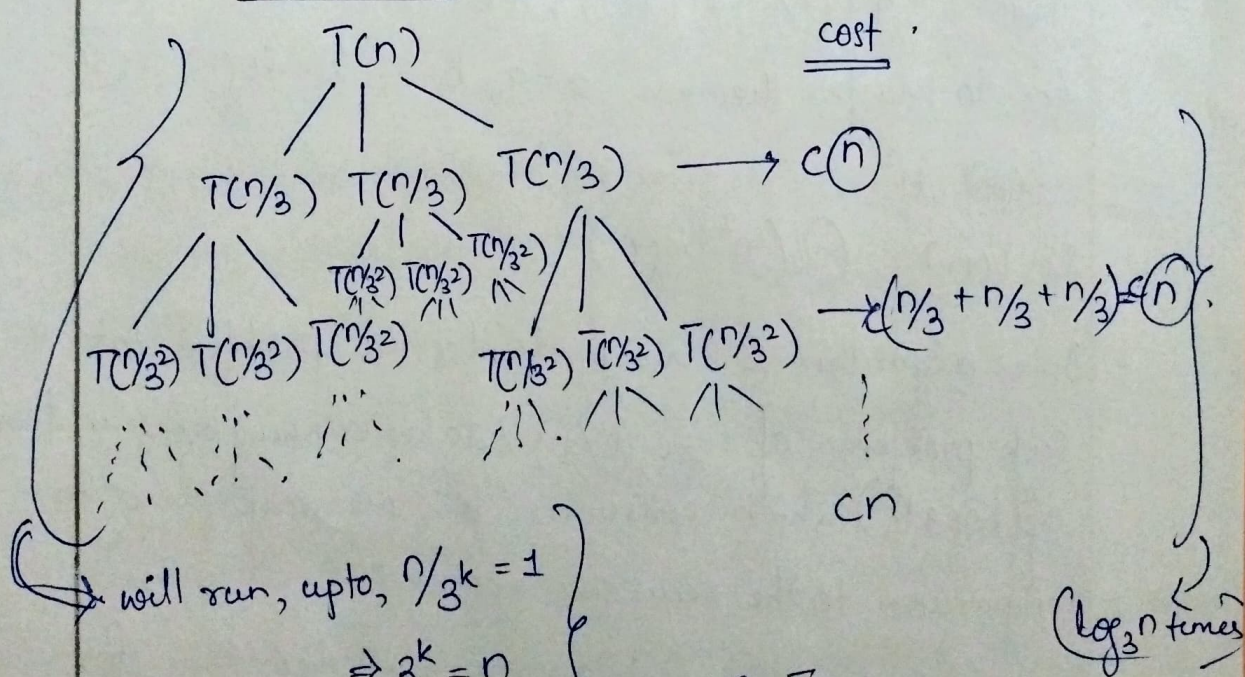 cost .
T(n)
T(n/3) T(n/3) T(n/3) → c(n)
T(n/3²) T(n/3²) T(n/3²)
T(n/3²) T(n/3²) T(n/3²) T(n/3²) T(n/3²) T(n/3²) → c(n/3 + n/3 + n/3) = c(n)
cn
will run, upto, n/3^k = 1
(log₃n times
⇒ 3^k = n